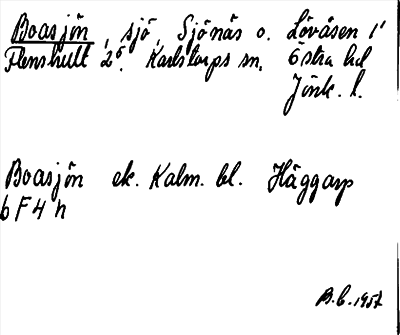 Boasjön, sjö, Sjönäs o. Lövåsen i
Flenshult 2⁵. Karlstorps sn. Östra hd
Jönk. l.
Boasjön ek. Kalm. bl. Häggarp
6 F 4 h
B.C. 1957